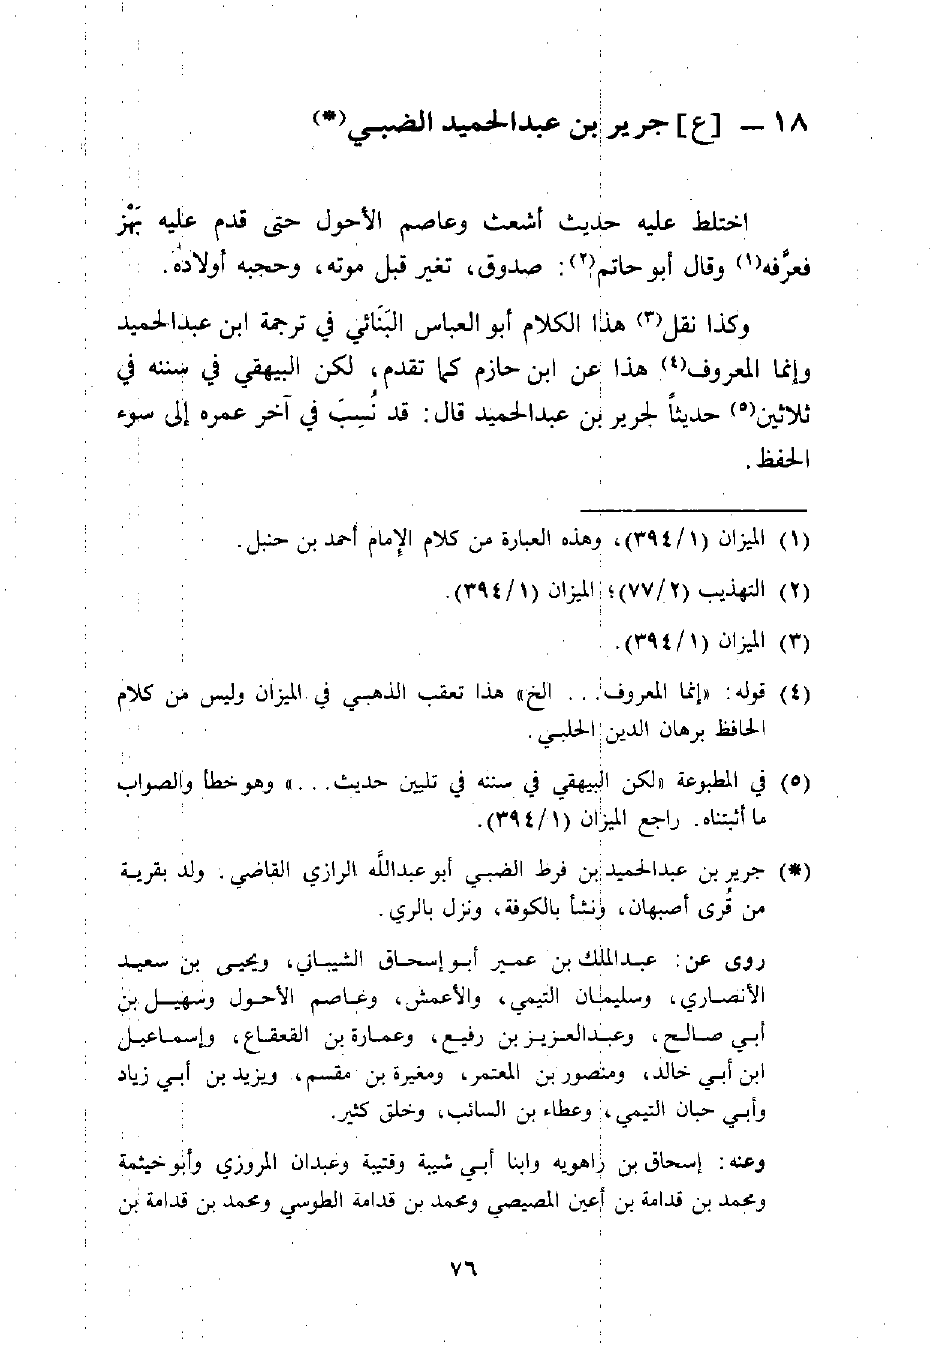 ١٨ ــ [ع] جرير بن عبدالحميد الضبـي(*)
اختلط عليه حديث أشعث وعاصم الأحول حتى قدم عليه بَهْز
فعرَّفه(١) وقال أبو حاتم(٢): صدوق، تغير قبل موته، وحجبه أولاده.
وكذا نقل(٣) هذا الكلام أبو العباس البَنَائي في ترجمة ابن عبدالحميد
وإنما المعروف(٤) هذا عن ابن حازم كما تقدم، لكن البيهقي في سننه في
ثلاثين(٥) حديثاً لجرير بن عبدالحميد قال: قد نُسِبَ في آخر عمره إلى سوء
الحفظ.
(١) الميزان (٣٩٤/١)، وهذه العبارة من كلام الإمام أحمد بن حنبل.
(٢) التهذيب (٧٧/٢)؛ الميزان (٣٩٤/١).
(٣) الميزان (٣٩٤/١).
(٤) قوله: «إنما المعروف... الخ» هذا تعقب الذهبـي في الميزان وليس من كلام
الحافظ برهان الدين الحلبـي.
(٥) في المطبوعة «لكن البيهقي في سننه في تليين حديث...» وهو خطأ والصواب
ما أثبتناه. راجع الميزان (٣٩٤/١).
(*) جرير بن عبدالحميد بن قرط الضبـي أبو عبداللَّه الرازي القاضي. ولد بقرية
من قُرى أصبهان، ونشأ بالكوفة، ونزل بالري.
روى عن: عبدالملك بن عمير أبو إسحاق الشيباني، ويحيى بن سعيد
الأنصاري، وسليمان التيمي، والأعمش، وعاصم الأحول وسهيل بن
أبـي صالح، وعبدالعزيز بن رفيع، وعمارة بن القعقاع، وإسماعيل
ابن أبـي خالد، ومنصور بن المعتمر، ومغيرة بن مقسم، ويزيد بن أبـي زياد
وأبـي حبان التيمي، وعطاء بن السائب، وخلق كثير.
وعنه: إسحاق بن راهويه وابنا أبـي شيبة وقتيبة وعبدان المروزي وأبو خيثمة
ومحمد بن قدامة بن أعين المصيصي ومحمد بن قدامة الطوسي ومحمد بن قدامة بن
٧٦